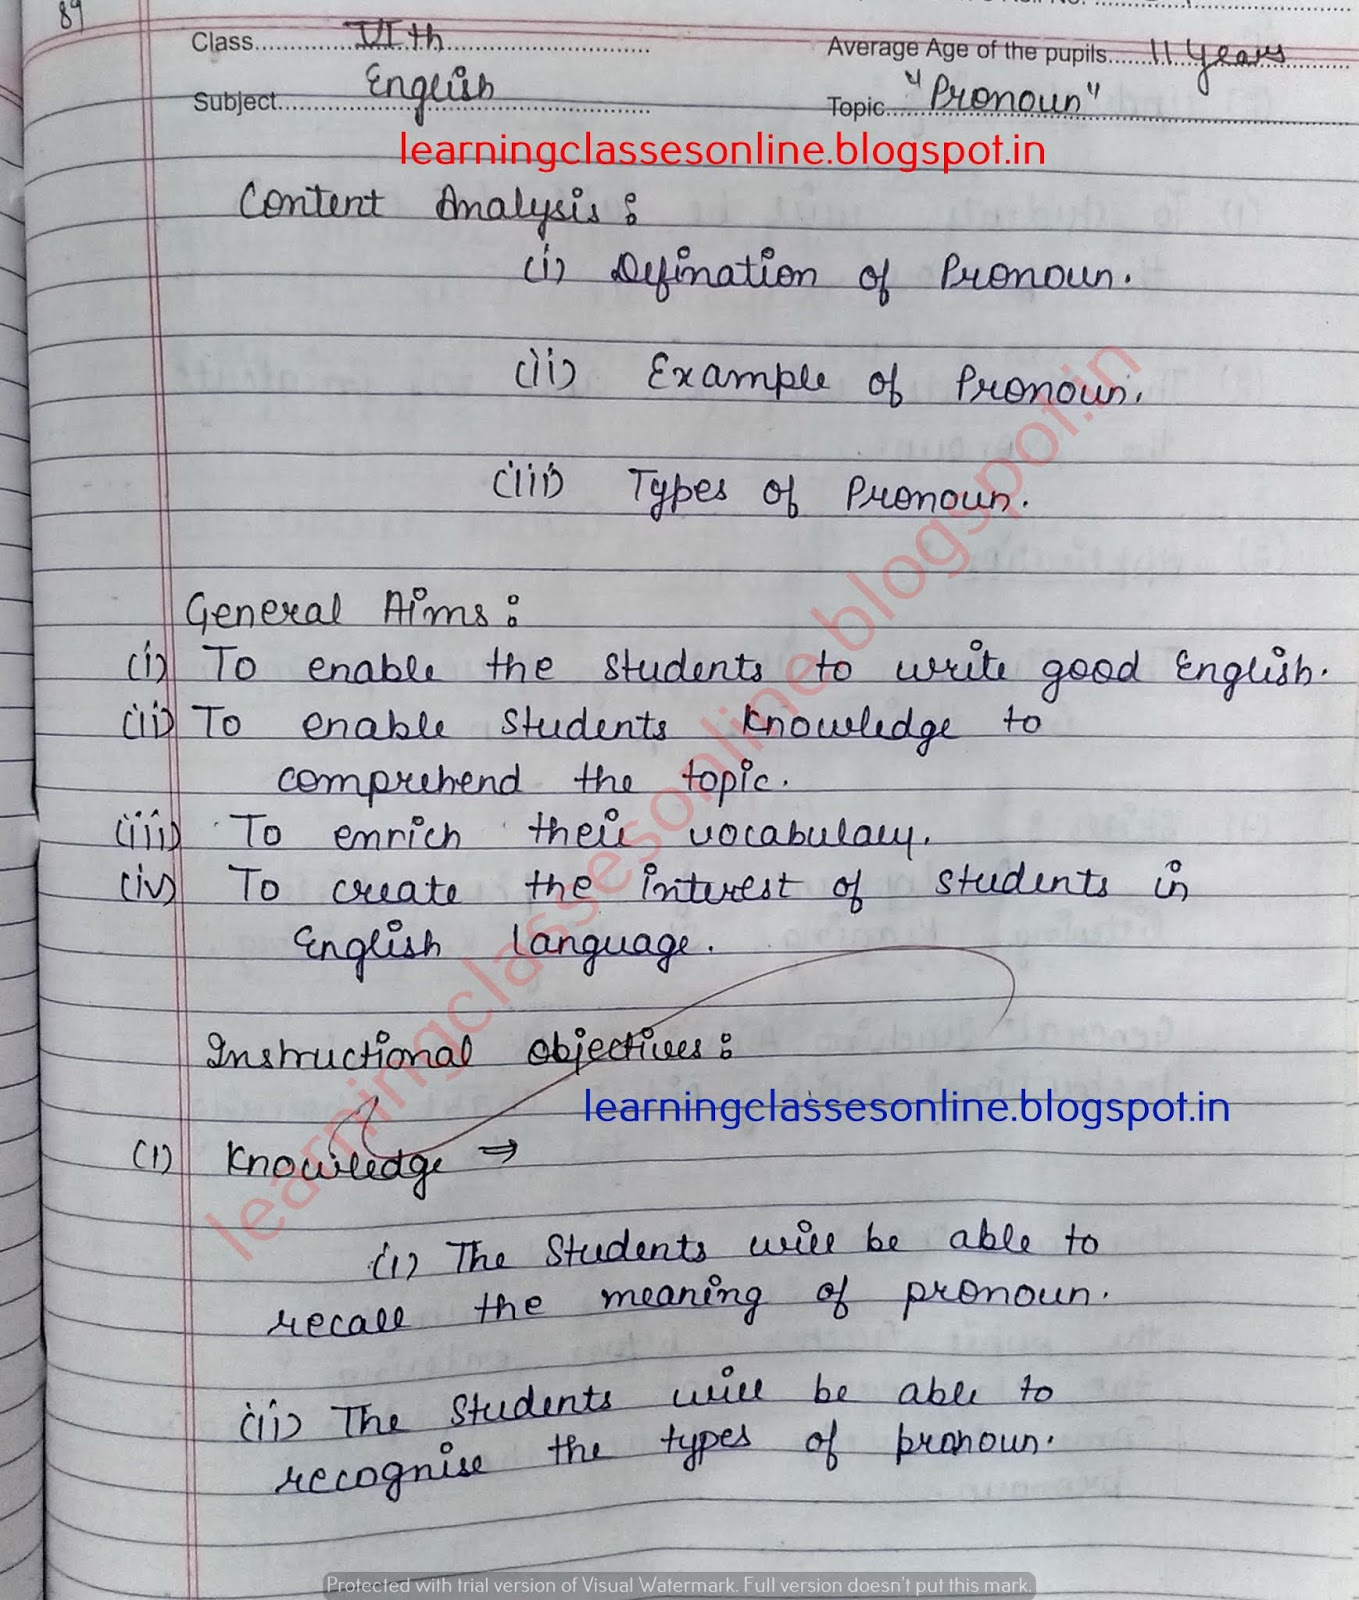 89
Class VIth Average Age of the pupils 11 years
Subject English Topic "Pronoun"
learningclassesonline.blogspot.in
Content Analysis :
(i) Defination of Pronoun.
(ii) Example of Pronoun.
(iii) Types of Pronoun.
General Aims :
(i) To enable the students to write good English.
(ii) To enable students knowledge to
comprehend the topic.
(iii) To enrich their vocabulary.
(iv) To create the interest of students in
English language.
Instructional objectives :
learningclassesonline.blogspot.in
(1) Knowledge ⇒
(i) The Students will be able to
recall the meaning of pronoun.
(ii) The Students will be able to
recognise the types of pronoun.
learningclassesonline.blogspot.in
Protected with trial version of Visual Watermark. Full version doesn't put this mark.